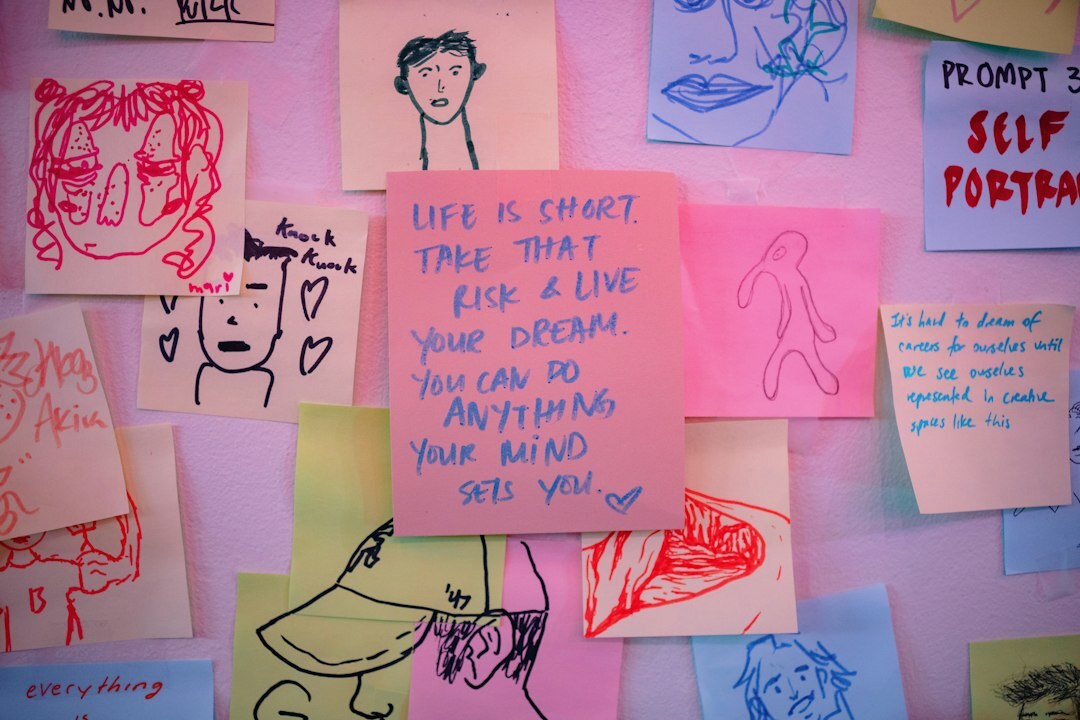 PROMPT 3
SELF
PORTRA
mari
Knock
Knock
LIFE IS SHORT.
TAKE THAT
RISK & LIVE
YOUR DREAM.
YOU CAN DO
ANYTHING
YOUR MIND
SETS YOU.
It's hard to dream of
careers for ourselves until
we see ourselves
represented in creative
spaces like this
'47
B
everything
is